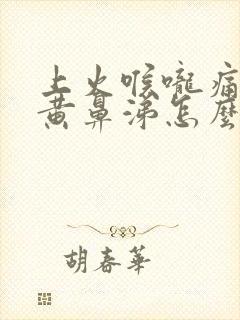 上火喉嚨痛
黃鼻涕怎麼
胡春華